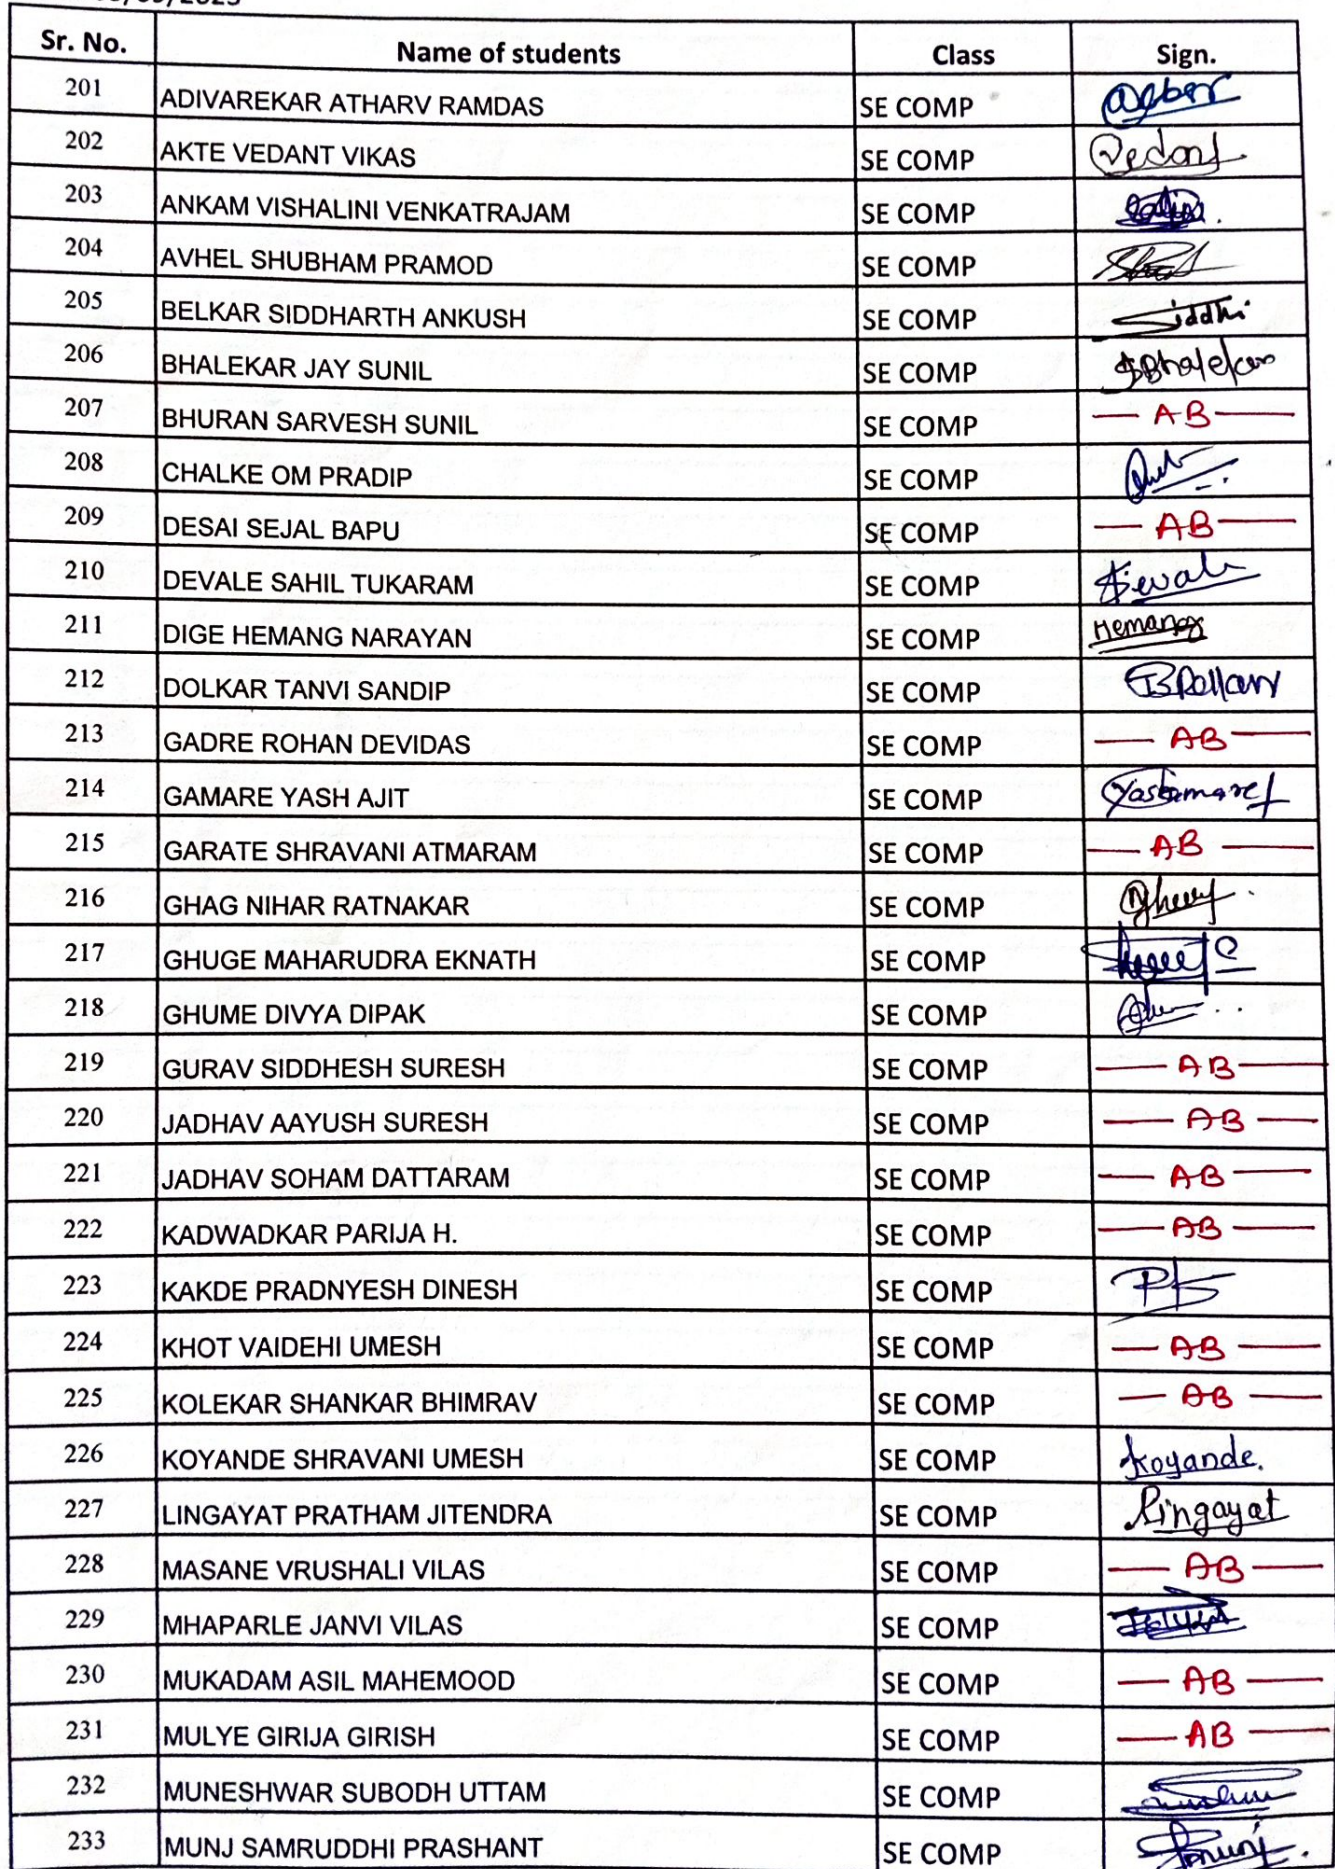 Sr. No. Name of students Class Sign.
201 ADIVAREKAR ATHARV RAMDAS SE COMP
202 AKTE VEDANT VIKAS SE COMP Vedant
203 ANKAM VISHALINI VENKATRAJAM SE COMP
204 AVHEL SHUBHAM PRAMOD SE COMP
205 BELKAR SIDDHARTH ANKUSH SE COMP Siddhi
206 BHALEKAR JAY SUNIL SE COMP
207 BHURAN SARVESH SUNIL SE COMP AB
208 CHALKE OM PRADIP SE COMP
209 DESAI SEJAL BAPU SE COMP AB
210 DEVALE SAHIL TUKARAM SE COMP
211 DIGE HEMANG NARAYAN SE COMP Hemang
212 DOLKAR TANVI SANDIP SE COMP
213 GADRE ROHAN DEVIDAS SE COMP AB
214 GAMARE YASH AJIT SE COMP
215 GARATE SHRAVANI ATMARAM SE COMP AB
216 GHAG NIHAR RATNAKAR SE COMP
217 GHUGE MAHARUDRA EKNATH SE COMP
218 GHUME DIVYA DIPAK SE COMP
219 GURAV SIDDHESH SURESH SE COMP AB
220 JADHAV AAYUSH SURESH SE COMP AB
221 JADHAV SOHAM DATTARAM SE COMP AB
222 KADWADKAR PARIJA H. SE COMP AB
223 KAKDE PRADNYESH DINESH SE COMP
224 KHOT VAIDEHI UMESH SE COMP AB
225 KOLEKAR SHANKAR BHIMRAV SE COMP AB
226 KOYANDE SHRAVANI UMESH SE COMP Koyande.
227 LINGAYAT PRATHAM JITENDRA SE COMP Lingayat
228 MASANE VRUSHALI VILAS SE COMP AB
229 MHAPARLE JANVI VILAS SE COMP
230 MUKADAM ASIL MAHEMOOD SE COMP AB
231 MULYE GIRIJA GIRISH SE COMP AB
232 MUNESHWAR SUBODH UTTAM SE COMP
233 MUNJ SAMRUDDHI PRASHANT SE COMP